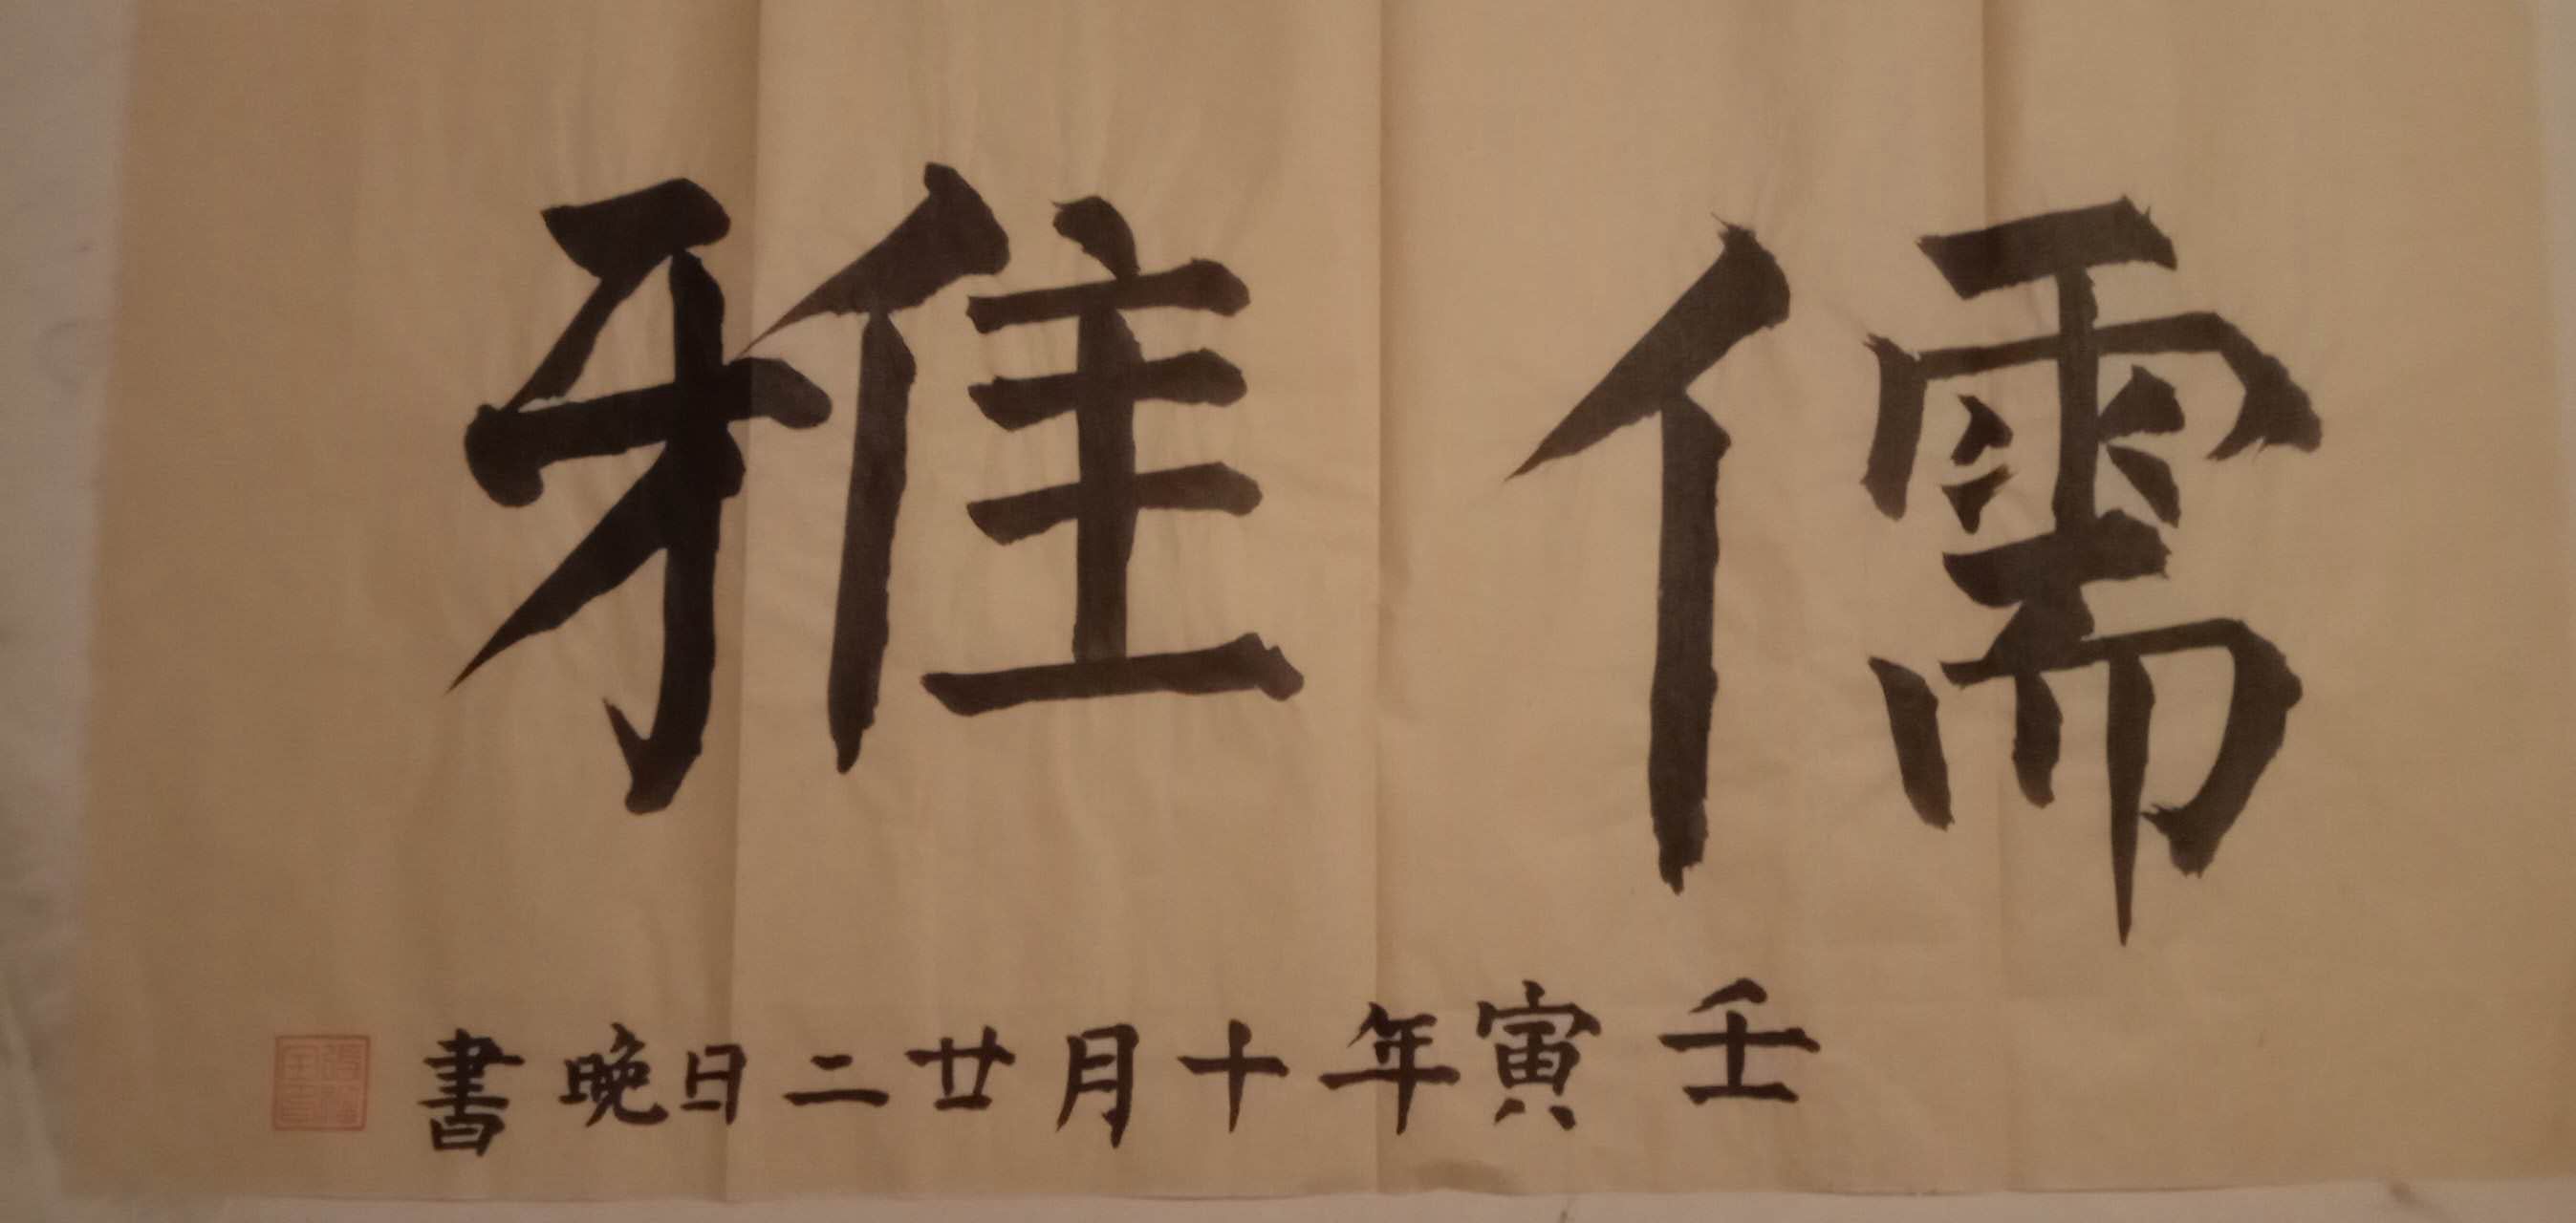 儒雅
壬寅年十月廿二日晚書